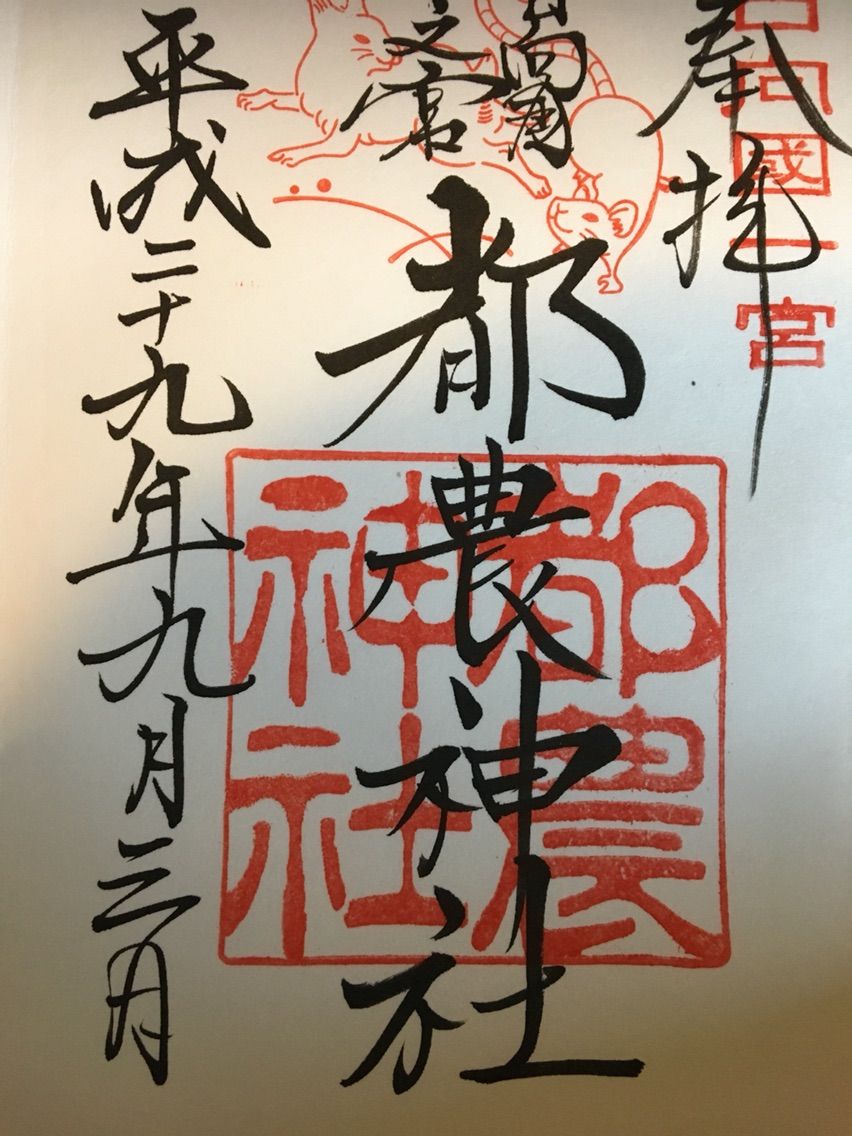 日向國一宮
奉拝
之宮
都農神社
都農
神社
平成二十九年九月三日